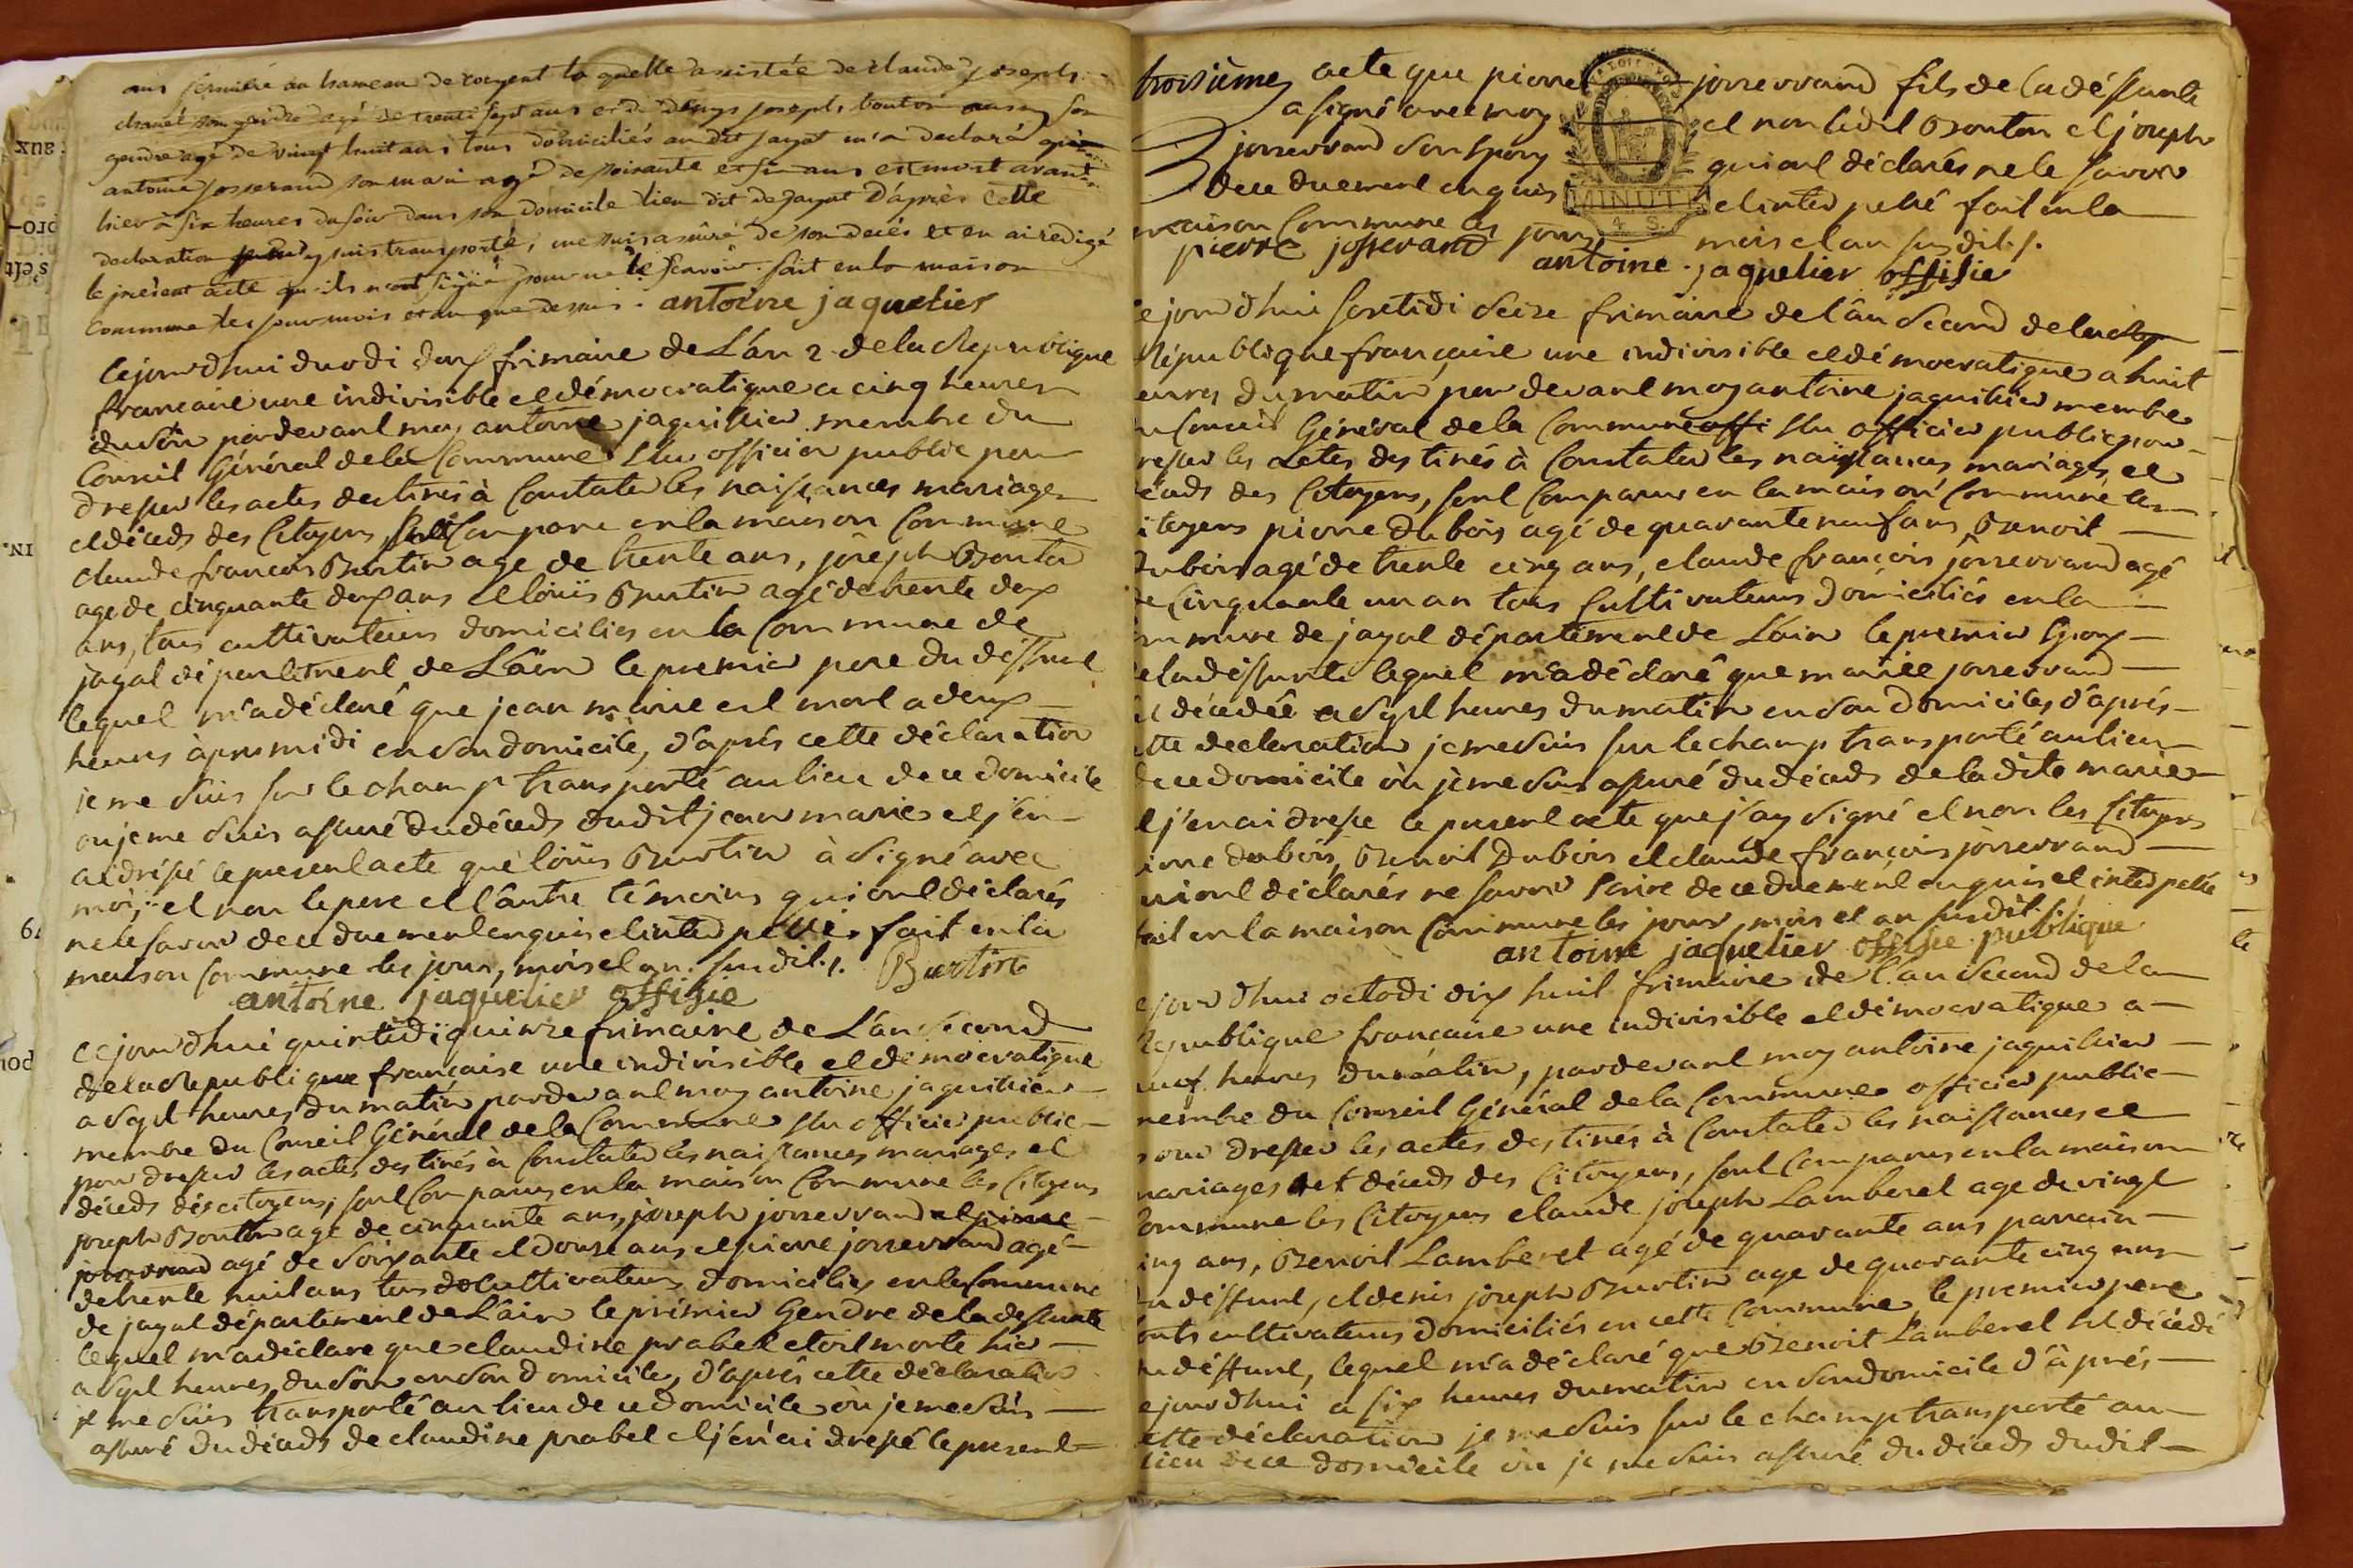 ans fermière au hameau de la quelle assistée de claude joseph
son gendre agé de trente sept ans et de denys joseph bouton son
gendre agé de vingt huit ans tous domiciliés au dit jayat m'a declaré que
antoine josserand son mari agé de soixante et six ans est mort avant
hier à six heures du soir dans son domicile lieu dit de jayat D'après cette
declaration suis transporté, me suis assuré de son decés et en ai redigé
le present acte qu'ils n'ont signé pour ne le scavoir. fait en la maison
commune les jour mois et an que dessus. antoine jaquelier
Cejourdhui duodi douze frimaire de L'an 2 de la Republique
francaise une indivisible et démocratique a cinq heures
du soir pardevant moy antoine jaquillier membre du
Conseil Général de la Commune élu officier public pour
dresser les actes destinés à Constater les naissances mariages
et décès des Citoyens, sont Comparu en la maison Commune
claude francois Burtin age de trente ans, joseph Bouton
age de cinquante deux ans et loüis Burtin agé de trente deux
ans, tous cultivateurs domiciliés en la Commune de
jayat département de L'ain le premier pere du déffunt
lequel m'a déclaré que jean marie est mort a deux
heures après midi en son domicile, d'après cette déclaration
je me suis sur le champ transporté au lieu de ce domicile
ou je me suis assuré du décès dudit jean marie et j'en
ai dréssé le present acte que loüis Burtin à signé avec
moi, et non le pere et l'autre témoins qui ont déclarés
ne le savoir de ce duement enquis et interpellé. fait en la
maison Commune les jour, mois et an susdit./. Burtin
antoine jaquelier offisie
Cejourdhui quintidi quinze frimaire de L'an second
de la Republique française une indivisible et démocratique
a sept heures du matin pardevant moy antoine jaquillier
membre du Conseil Général de la Commune élu officier public
pour dresser les actes destinés à Constater les naissances mariages et
décès des citoyens, sont Comparus en la maison Commune les Citoyens
joseph Bouton age de cinquante ans, joseph josserrand et pierre
josserrand agé de soixante et douze ans et pierre josserrand agé
de trente huit ans tous cultivateurs domiciliés en la Commune
de jayat département de L'ain le prémier Gendre de la deffunte
lequel m'a déclaré que claudine prabel etoit morte hier
a sept heures du soir en son domicile, d'après cette déclaration
je me suis transporté au lieu de ce domicile où je me suis
assuré du décès de claudine prabel et j'en ai dressé le present
troisième acte que pierre josserrand fils de la défunte
a signé avec moy et non ledit Bouton et joseph
josserrand son époux qui ont déclarés ne le savoir
de ce duement enquis et interpellé fait en la
maison Commune les jour mois et an susdit./.
MINUTE
4 S
pierre josserand antoine jaquelier offisie
ejourdhui sextidi seize frimaire de l'an second de la
République française une indivisible et démocratique a huit
eures du matin par devant moy antoine jaquillier membre
u Conseil Général de la Commune offi élu officier public pour
resser les actes destinés à Constater les naissances mariages et
écés des Citoyens, sont Comparus en la maison Commune les
itoyens pierre dubois agé de quarante neuf ans, Benoit
Dubois agé de trente cinq ans, claude françois josserrand agé
de Cinquante un an tous Cultivateurs domiciliés en la
ommune de jayat département de L'ain le premier époux
e la déffunte lequel m'a déclaré que mariee josserrand
est décédée a sept heures du matin en son domicile, d'après
ette declaration je me suis sur le champ transporté au lieu
de ce domicile où je me suis assuré du décès de la dite marie
et j'en ai dressé le present acte que j'ay signé et non les Citoyens
ierre dubois, Benoit Dubois et claude françois josserrand
ui ont déclarés ne savoir faire de ce duement enquis et interpellé
fait en la maison Commune les jour, mois et an susdit./.
antoine jaquelier offisie publique
ejourdhui octodi dix huit frimaire de l'an second de la
Republique française une indivisible et démocratique a
neuf heures du matin, pardevant moy antoine jaquillier
membre du Conseil Général de la Commune officier public
pour dresser les actes destinés à Constater les naissances et
mariages et décès des Citoyens, sont Comparus en la maison
Commune les Citoyens claude joseph Lamberet age de vingt
inq ans, Benoit Lamberet agé de quarante ans parrain
du déffunt, et denis joseph Burtin age de quarante cinq ans
touts cultivateurs domiciliés en cette Commune, le premier pere
du déffunt, lequel m'a déclaré que Benoit Lamberet est décédé
ejourdhui a six heures du matin en son domicile d'àprés
ette déclaration je me suis sur le champ transporté au
lieu de ce domicile où je me suis assuré du décès dudit